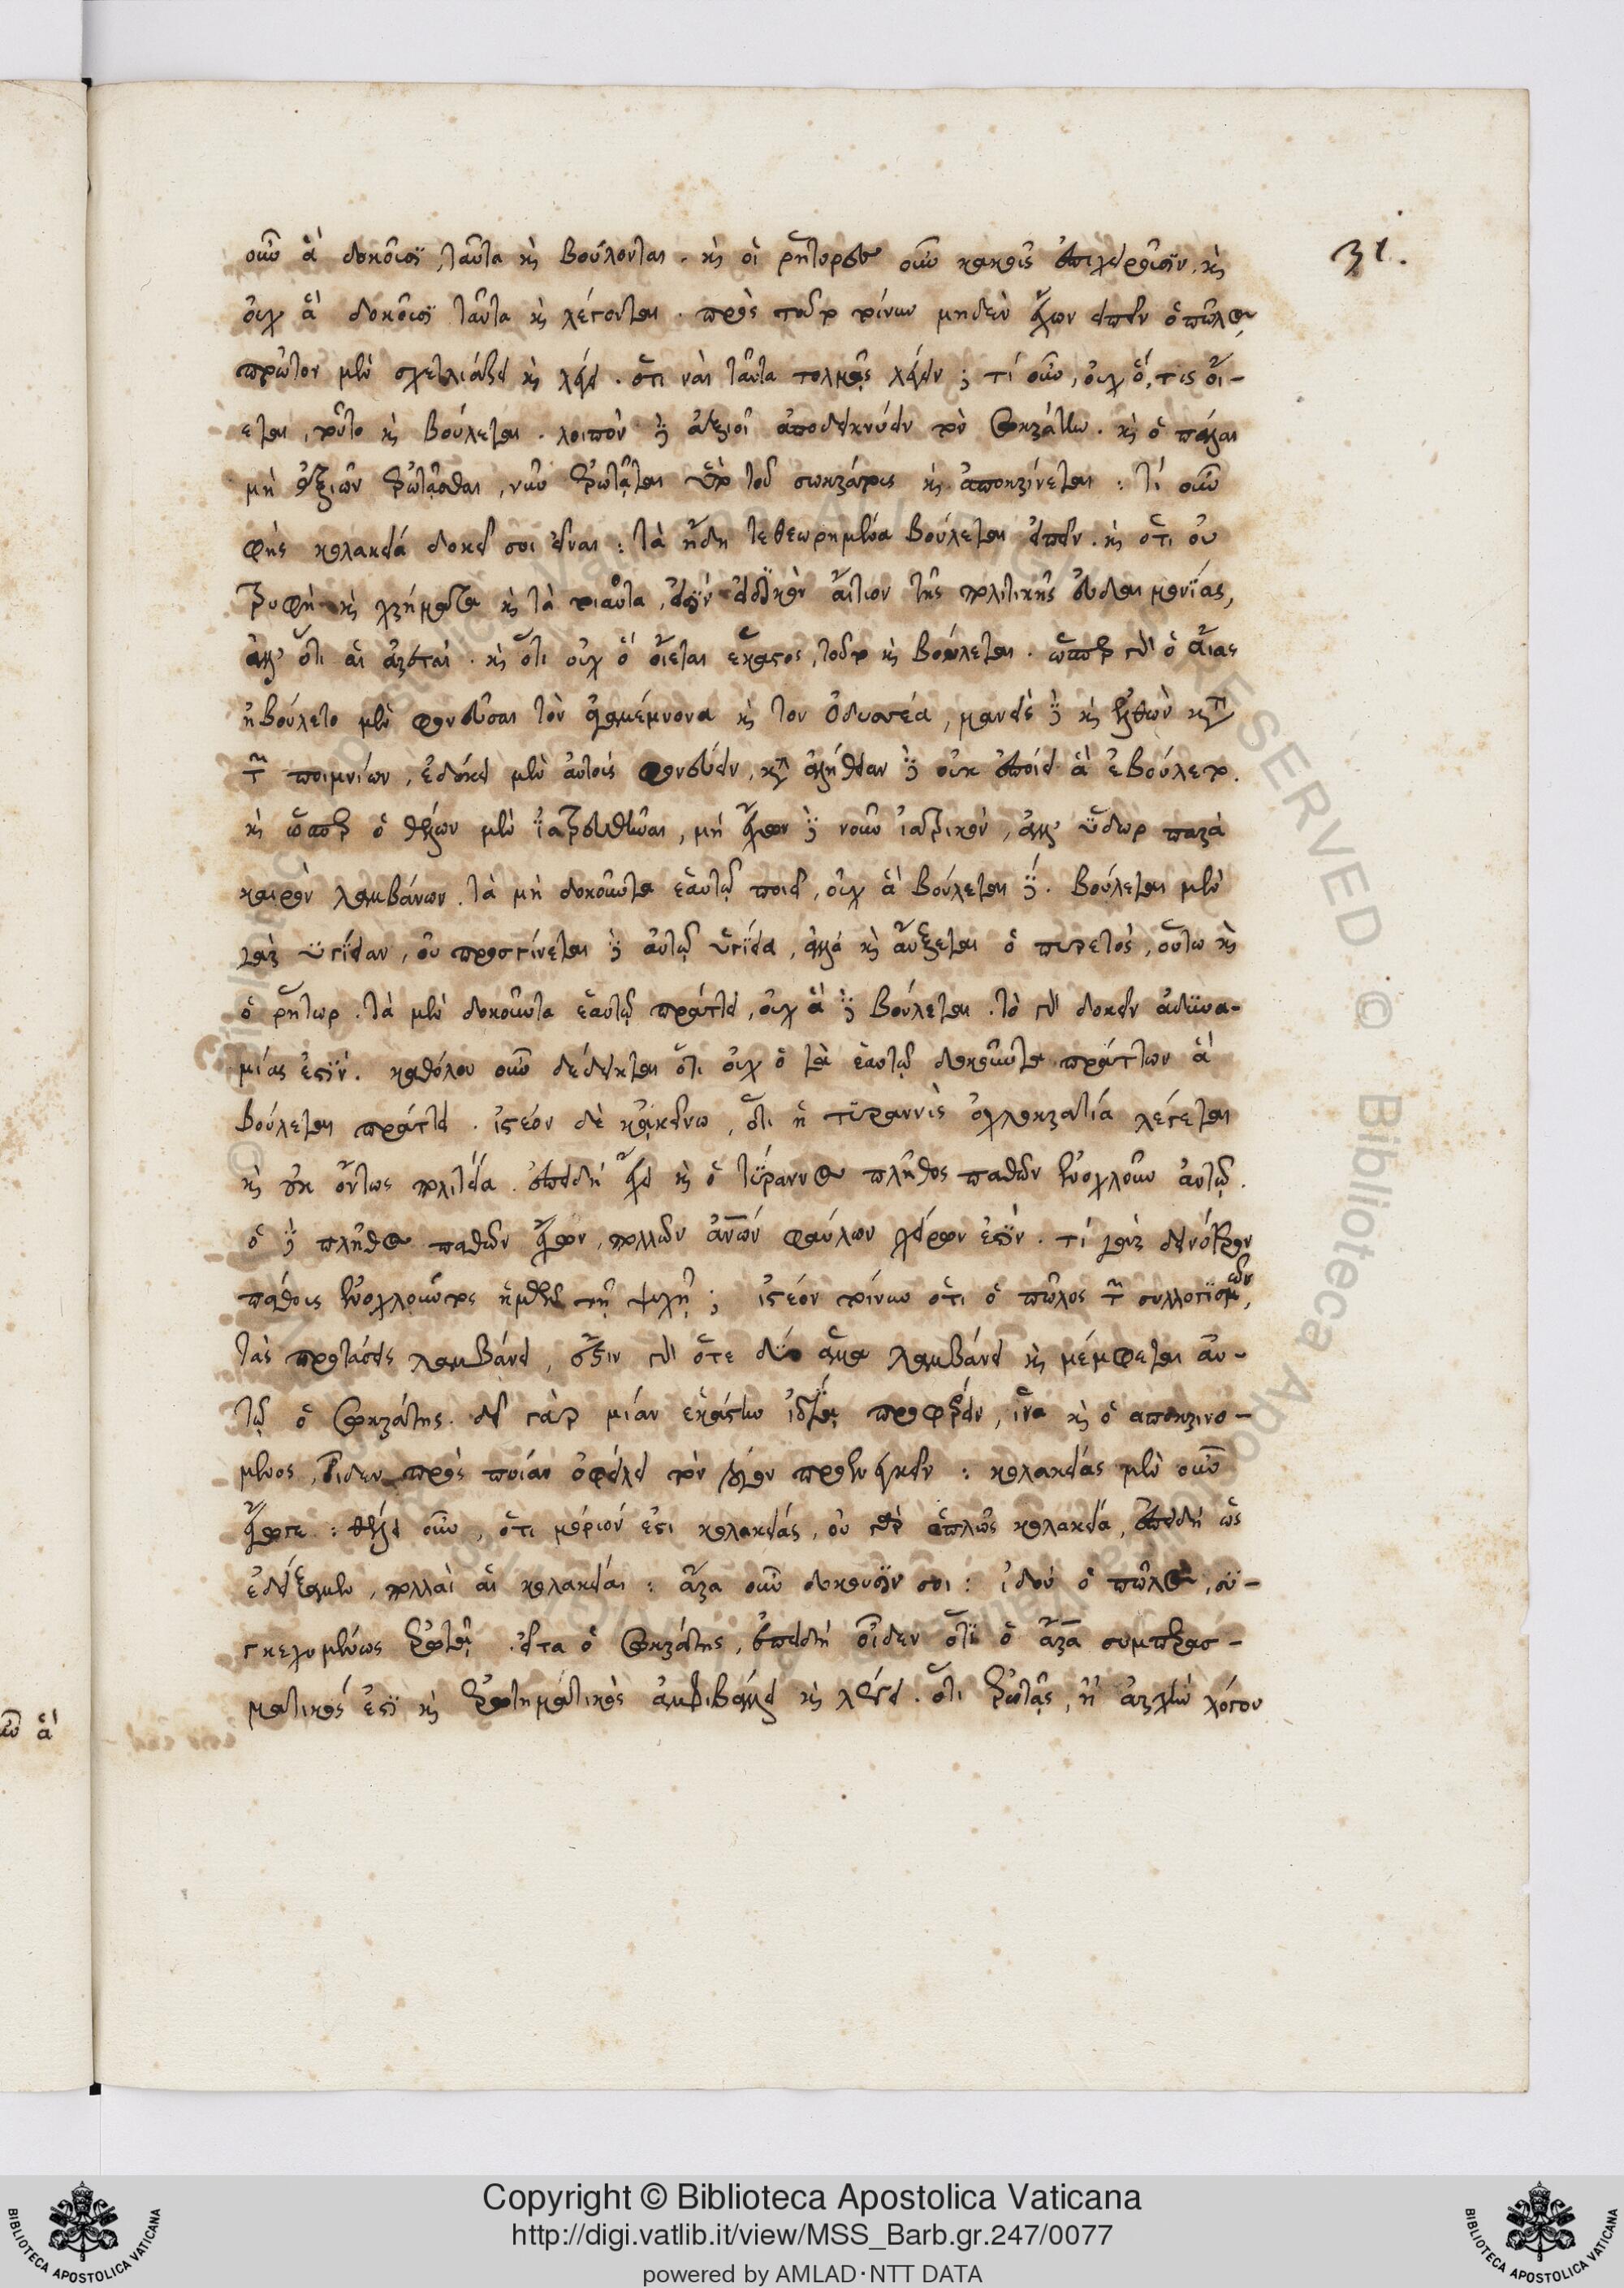 31.
οὖν ἃ δοκοῦσι, ταῦτα καὶ βούλονται. καὶ οἱ ῥήτορες οὖν κακοῖς ἐπιχειροῦσιν, καὶ
οὐχ ἃ δοκοῦσι ταῦτα καὶ λέγονται. πρὸς τοῦτο τοίνυν μηδὲν ἔχων εἰπεῖν ὁ πῶλος
πρῶτον μὲν σχετλιάζει καὶ λέγει. ὅτι ναὶ ταῦτα τολμᾷς λέγειν; τί οὖν, οὐχ ὅ, τις οἴ-
εται, τοῦτο καὶ βούλεται. λοιπὸν δὲ ἀξιοῖ ἀποδεικνύειν τὸν σωκράτην. καὶ ὁ πάλαι
μὴ ἀξιῶν ἐρωτᾶσθαι, νῦν ἐρωτᾶται ὑπὸ τοῦ σωκράτους καὶ ἀποκρίνεται: τί οὖν
φής κολακεία δοκεῖ σοι εἶναι: τὰ ἤδη τεθεωρημένα βούλεται εἰπεῖν. καὶ ὅτι οὐ
τρυφὴ καὶ χρήματα καὶ τὰ τοιαῦτα, ἐστὶν εἰδικὸν αἴτιον τῆς πολιτικῆς εὐδαιμονίας,
ἀλλ' ὅτι αἱ ἀρεταί. καὶ ὅτι οὐχ ὃ οἴεται ἕκαστος, τοῦτο καὶ βούλεται. ὥσπερ γὰρ ὁ αἴας
ἠβούλετο μὲν φονεῦσαι τὸν ἀγαμέμνονα καὶ τὸν ὀδυσσέα, μανεὶς δὲ καὶ ἐλθὼν κατὰ
τῶν ποιμνίων, ἐδόκει μὲν αὐτοὺς φονεύειν, κατὰ ἀλήθειαν δὲ οὐκ ἐποίει ἃ ἐβούλετο.
καὶ ὥσπερ ὁ θέλων μὲν ἰατρευθῆναι, μὴ ἔχων δὲ νοῦν ἰατρικὸν, ἀλλ' ὕδωρ παρὰ
καιρὸν λαμβάνων. τὰ μὴ δοκοῦντα ἑαυτῷ ποιεῖ, οὐχ ἃ βούλεται δέ. βούλεται μὲν
γὰρ ὑγίειαν, οὐ προσγίνεται δὲ αὐτῷ ὑγίεια, ἀλλὰ καὶ αὔξεται ὁ πυρετός, οὕτω καὶ
ὁ ῥήτωρ. τὰ μὲν δοκοῦντα ἑαυτῷ πράττει, οὐχ ἃ δὲ βούλεται. τὸ γὰρ δοκεῖν ἀδυνα-
μίας ἐστίν. καθόλου οὖν δέδεικται ὅτι οὐχ ὁ τὰ ἑαυτῷ δοκοῦντα πράττων ἃ
βούλεται πράττει. ἰστέον δὲ κἀκεῖνο, ὅτι ἡ τυραννὶς ὀχλοκρατία λέγεται
καὶ οὐκ ὄντως πολιτεία. ἐπειδὴ ἔχει καὶ ὁ τύραννος πλῆθος παθῶν ἐνοχλοῦν αὐτῷ.
ὁ δὲ πλῆθος παθῶν ἔχων, πολλῶν ἀνῶν φαύλων χείρων ἐστίν. τί γὰρ δεινότερον
πάθους ἐνοχλοῦντος ἡμῶν τῇ ψυχῇ; ἰστέον τοίνυν ὅτι ὁ πῶλος τῶν συλλογισμῶν,
τὰς προτάσεις λαμβάνει, ἔστιν γὰρ ὅτε δύο ἅμα λαμβάνει καὶ μέμφεται αὐ-
τῷ ὁ σωκράτης. δεῖ γὰρ μίαν ἑκάστην ἰδίᾳ προφέρειν, ἵνα καὶ ὁ ἀποκρινό-
μενος, οἶδεν πρὸς ποίαν ὀφείλει τὸν λόγον προενεγκεῖν: κολακείας μὲν οὖν
ἔγωγε: θέλει οὖν, ὅτι μόριόν ἐστι κολακείας, οὐ γὰρ ἁπλῶς κολακεία, ἐπειδὴ ὡς
ἐδείξαμεν, πολλαὶ αἱ κολακεῖαι: ἆρα οὖν δοκοῦσίν σοι: ἰδοὺ ὁ πῶλος, συ-
γκεχυμένως ἐρωτᾷ. εἶτα ὁ σωκράτης, ἐπειδὴ οἶδεν ὅτι ὁ ἆρα συμπερασ-
ματικός ἐστι καὶ ἐρωτηματικὸς ἀμφιβάλλει καὶ λέγει. ὅτι ἐρωτᾷς, ἢ ἀρχὴν λόγου
οὖν ἃ
Copyright © Biblioteca Apostolica Vaticana
http://digi.vatlib.it/view/MSS_Barb.gr.247/0077
powered by AMLAD·NTT DATA
BIBLIOTECA APOSTOLICA VATICANA
BIBLIOTECA APOSTOLICA VATICANA